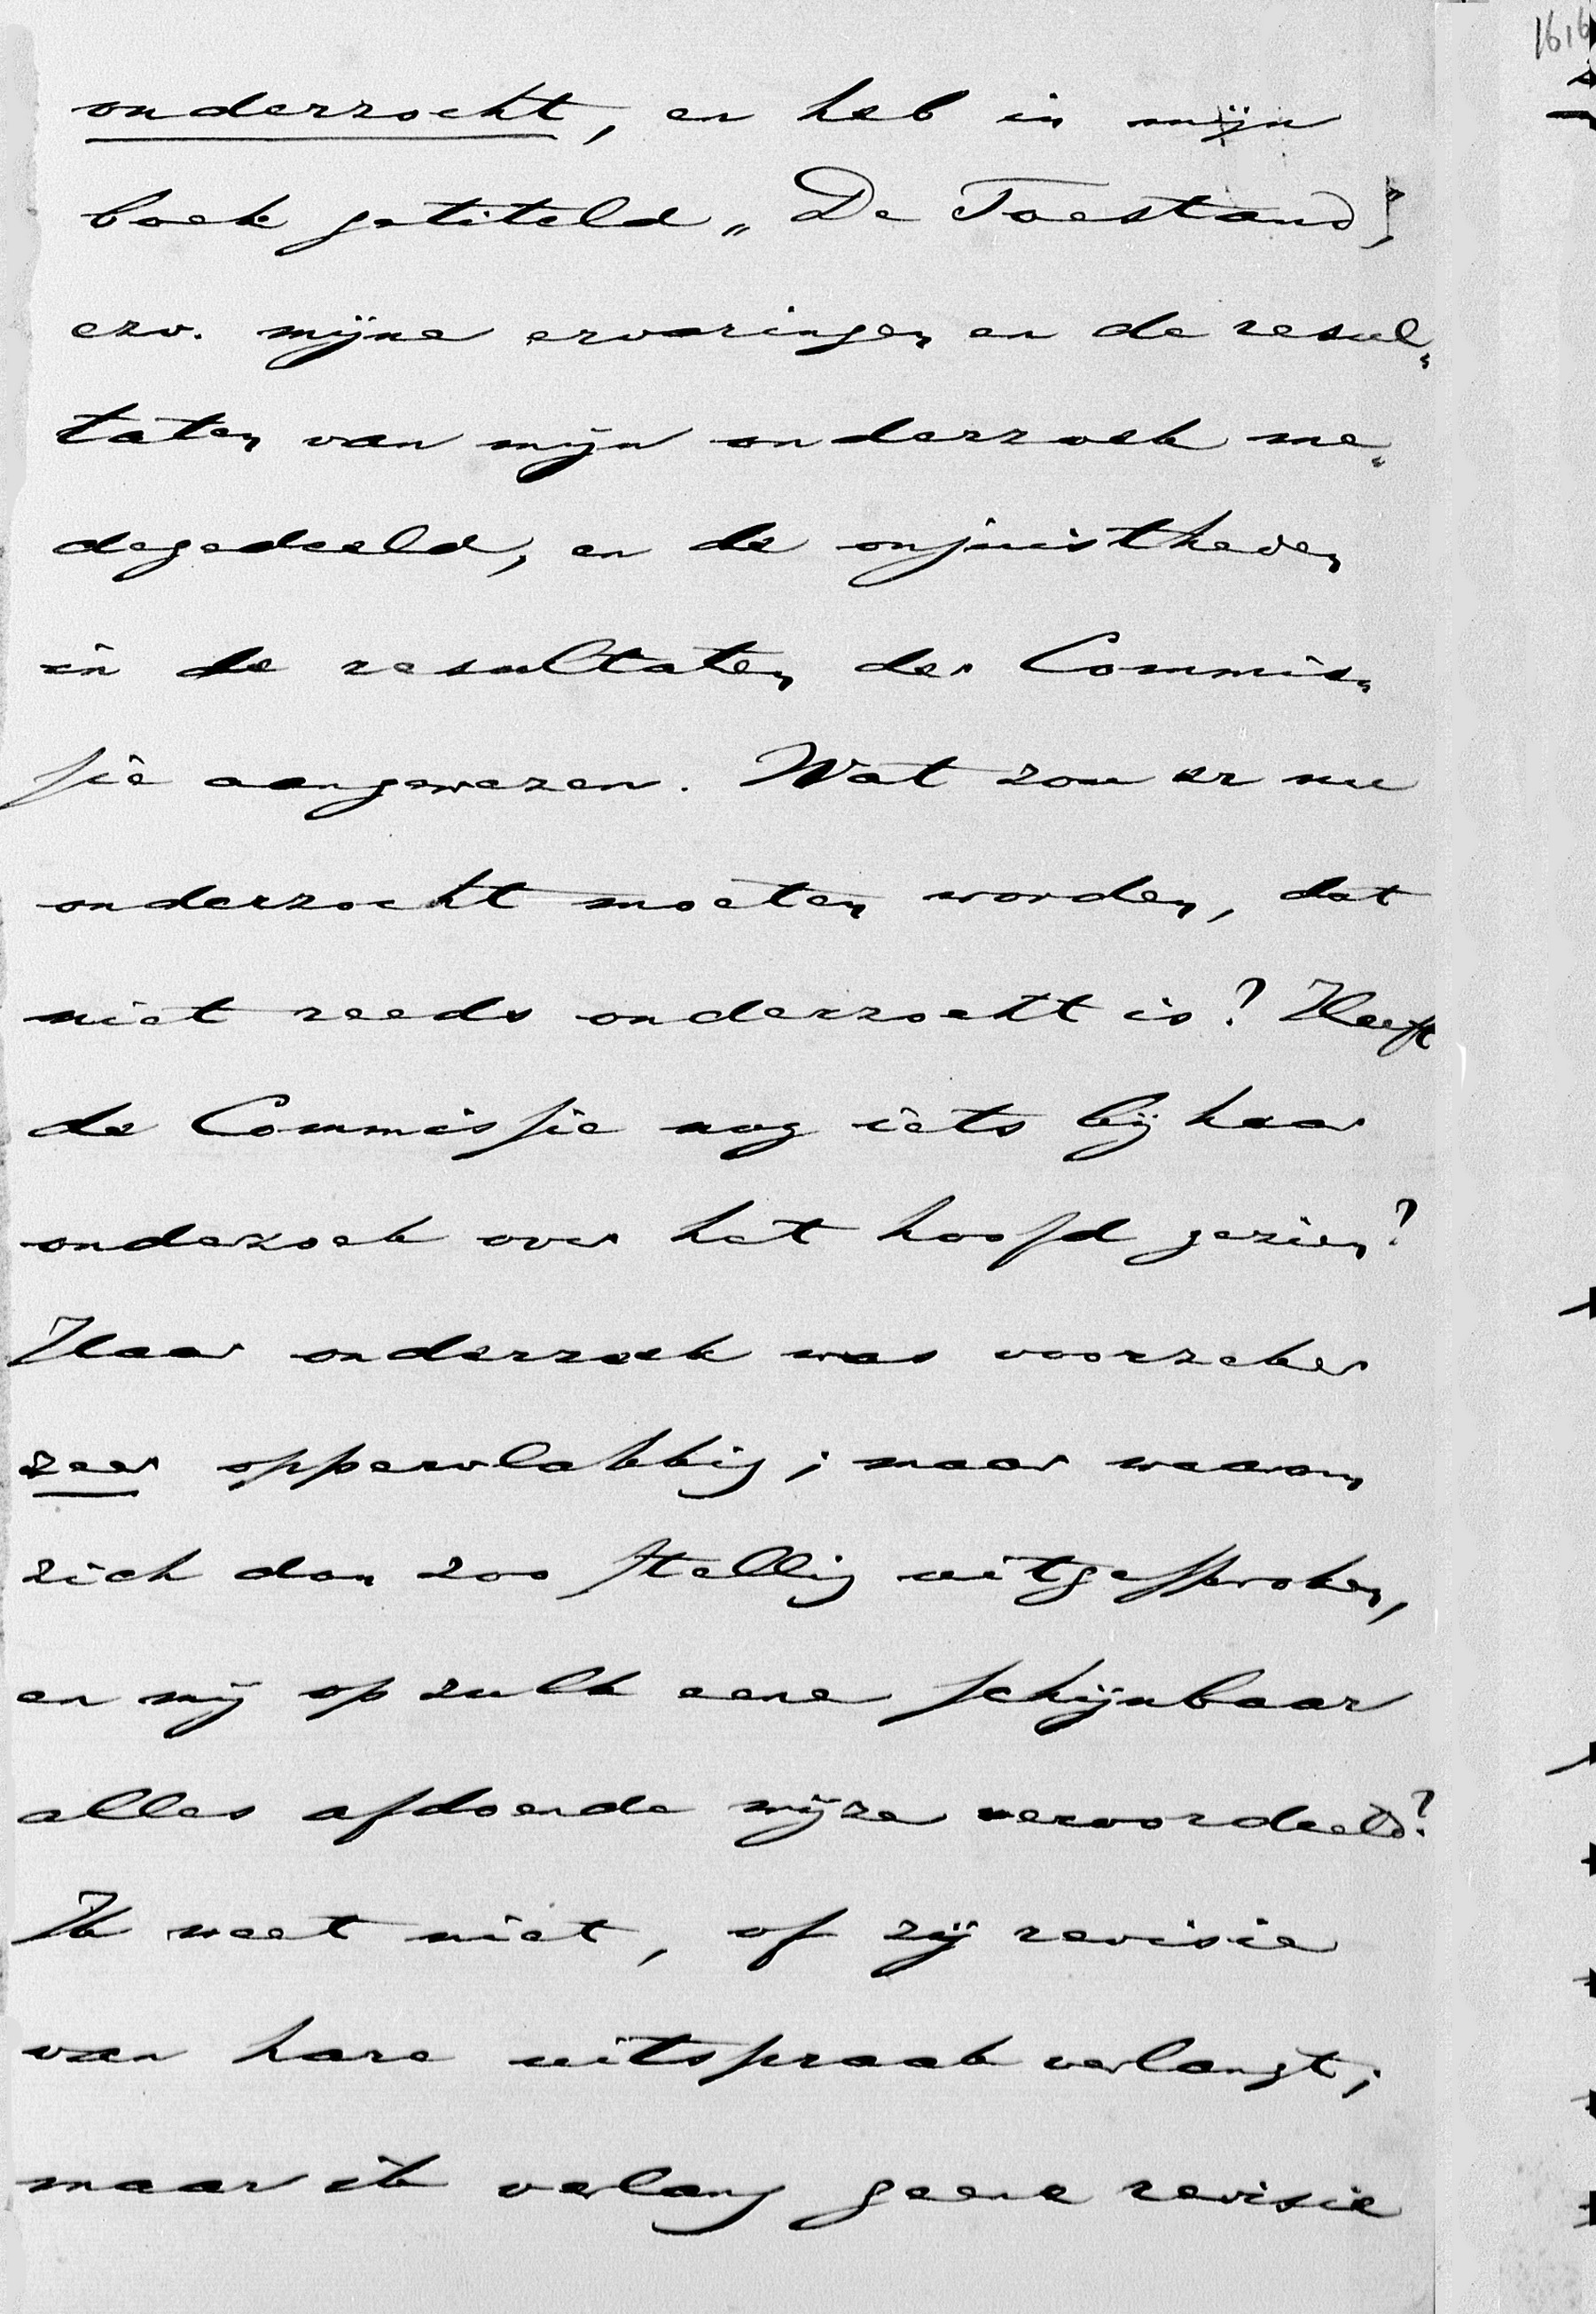 1616
onderzocht, en heb in mijn
boek getiteld „De Toestand",
enz. mijne ervaringen en de resul„
taten van mijn onderzoek me„
degedeeld, en de onjuistheden
in de resultaten der Commis„
sie aangewezen. Wat zou er nu
onderzocht moeten worden, dat
niet reeds onderzocht is? Heeft
de Commissie nog iets bij haar
onderzoek over het hoofd gezien?
Haar onderzoek was voorzeker
zeer oppervlakkig; maar waarom
zich dan zoo stellig uitgesproken,
en mij op zulk eene schijnbaar
alles afdoende wijze veroordeeld?
Ik weet niet, of zij revisie
van hare uitspraak verlangt;
maar ik verlang geene revisie